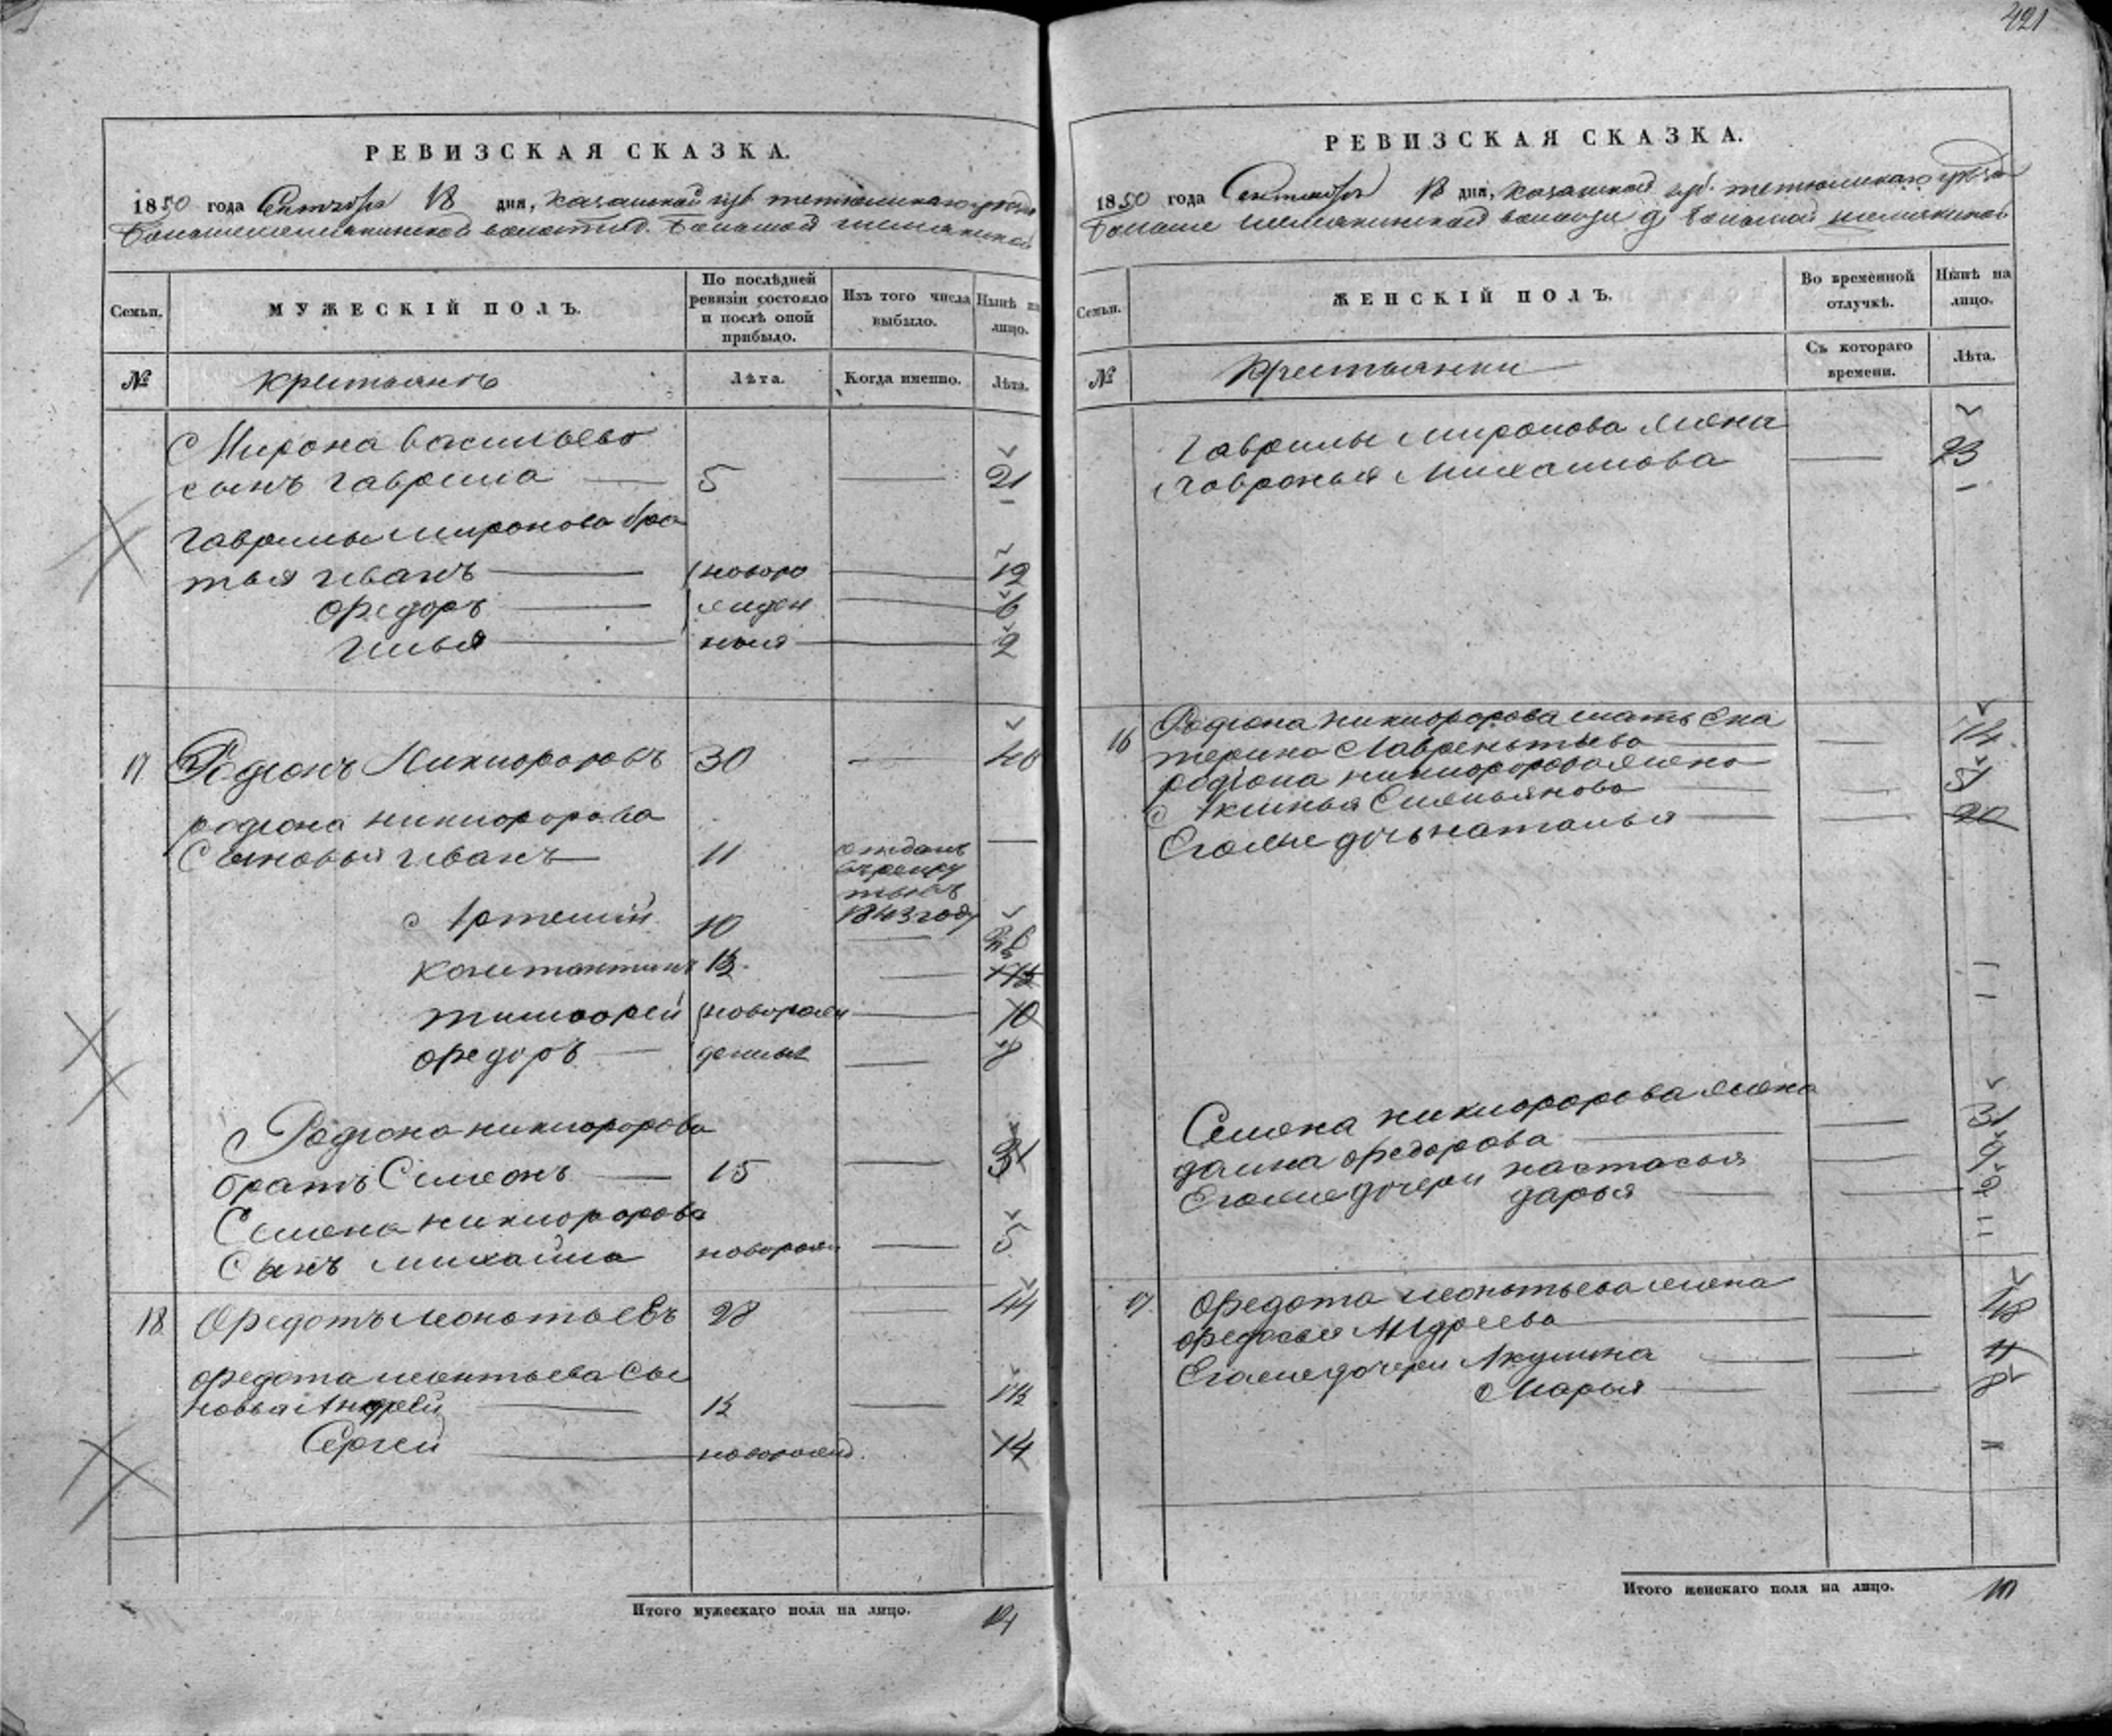 421
РЕВИЗСКАЯ СКАЗКА.
1850 года Сентября 18 дня, казанской губ тетюшскаго уезда
Большешемякинской волости д. Большой шемякиной
Семьи.
МУЖЕСКІЙ ПОЛЪ.
По послѣдней ревизіи состояло и послѣ оной прибыло.
Изъ того числа выбыло.
Нынѣ на лицо.
№
крестьянъ
Лѣта.
Когда именно.
Лѣта.
Мирона васильева
сынъ гаврила 5 21
гаврилы миронова бра
тья иванъ новоро 12
ѳедоръ жден 6
илья ныя 2
17 Родіонъ Никифоровъ 30 46
родіона никифорова
Сыновья иванъ 11 отданъ
въ рекру
ты въ
1843 году
Артемій 10 26
константинъ 13
тимофей новорож 10
ѳедоръ денные 8
Родіона никифорова
братъ Семенъ 15 31
Семена никифорова
Сынъ михайла новорож 5
18 Ѳедотъ леонтьевъ 28 44
ѳедота леонтьева сы
новья Андрей
Сергей новорожд. 14
Итого мужескаго пола на лицо.
РЕВИЗСКАЯ СКАЗКА.
1850 года Сентября 18 дня, казанской губ. тетюшскаго уезда
Больше шемякинской волости д. большой шемякиной
Семьи.
ЖЕНСКІЙ ПОЛЪ.
Во временной отлучкѣ.
Нынѣ на лицо.
№
Крестьянки
Съ котораго времени.
Лѣта.
Гаврилы миронова жена
Ѳавронья Михаилова 23
16 Родіона никифорова мать Ека
терина Лаврентьева 74
родіона никифорова жена
Аксинья Емельянова 51
Егоже дочь наталья 20
Семена никифорова жена 31
домна ѳедорова
Егоже дочери настасья 9
дарья
17 Ѳедота леонтьева жена
ѳедосья Андреева 48
Егоже дочери Акулина 11
Марья 8
Итого женскаго пола на лицо. 10